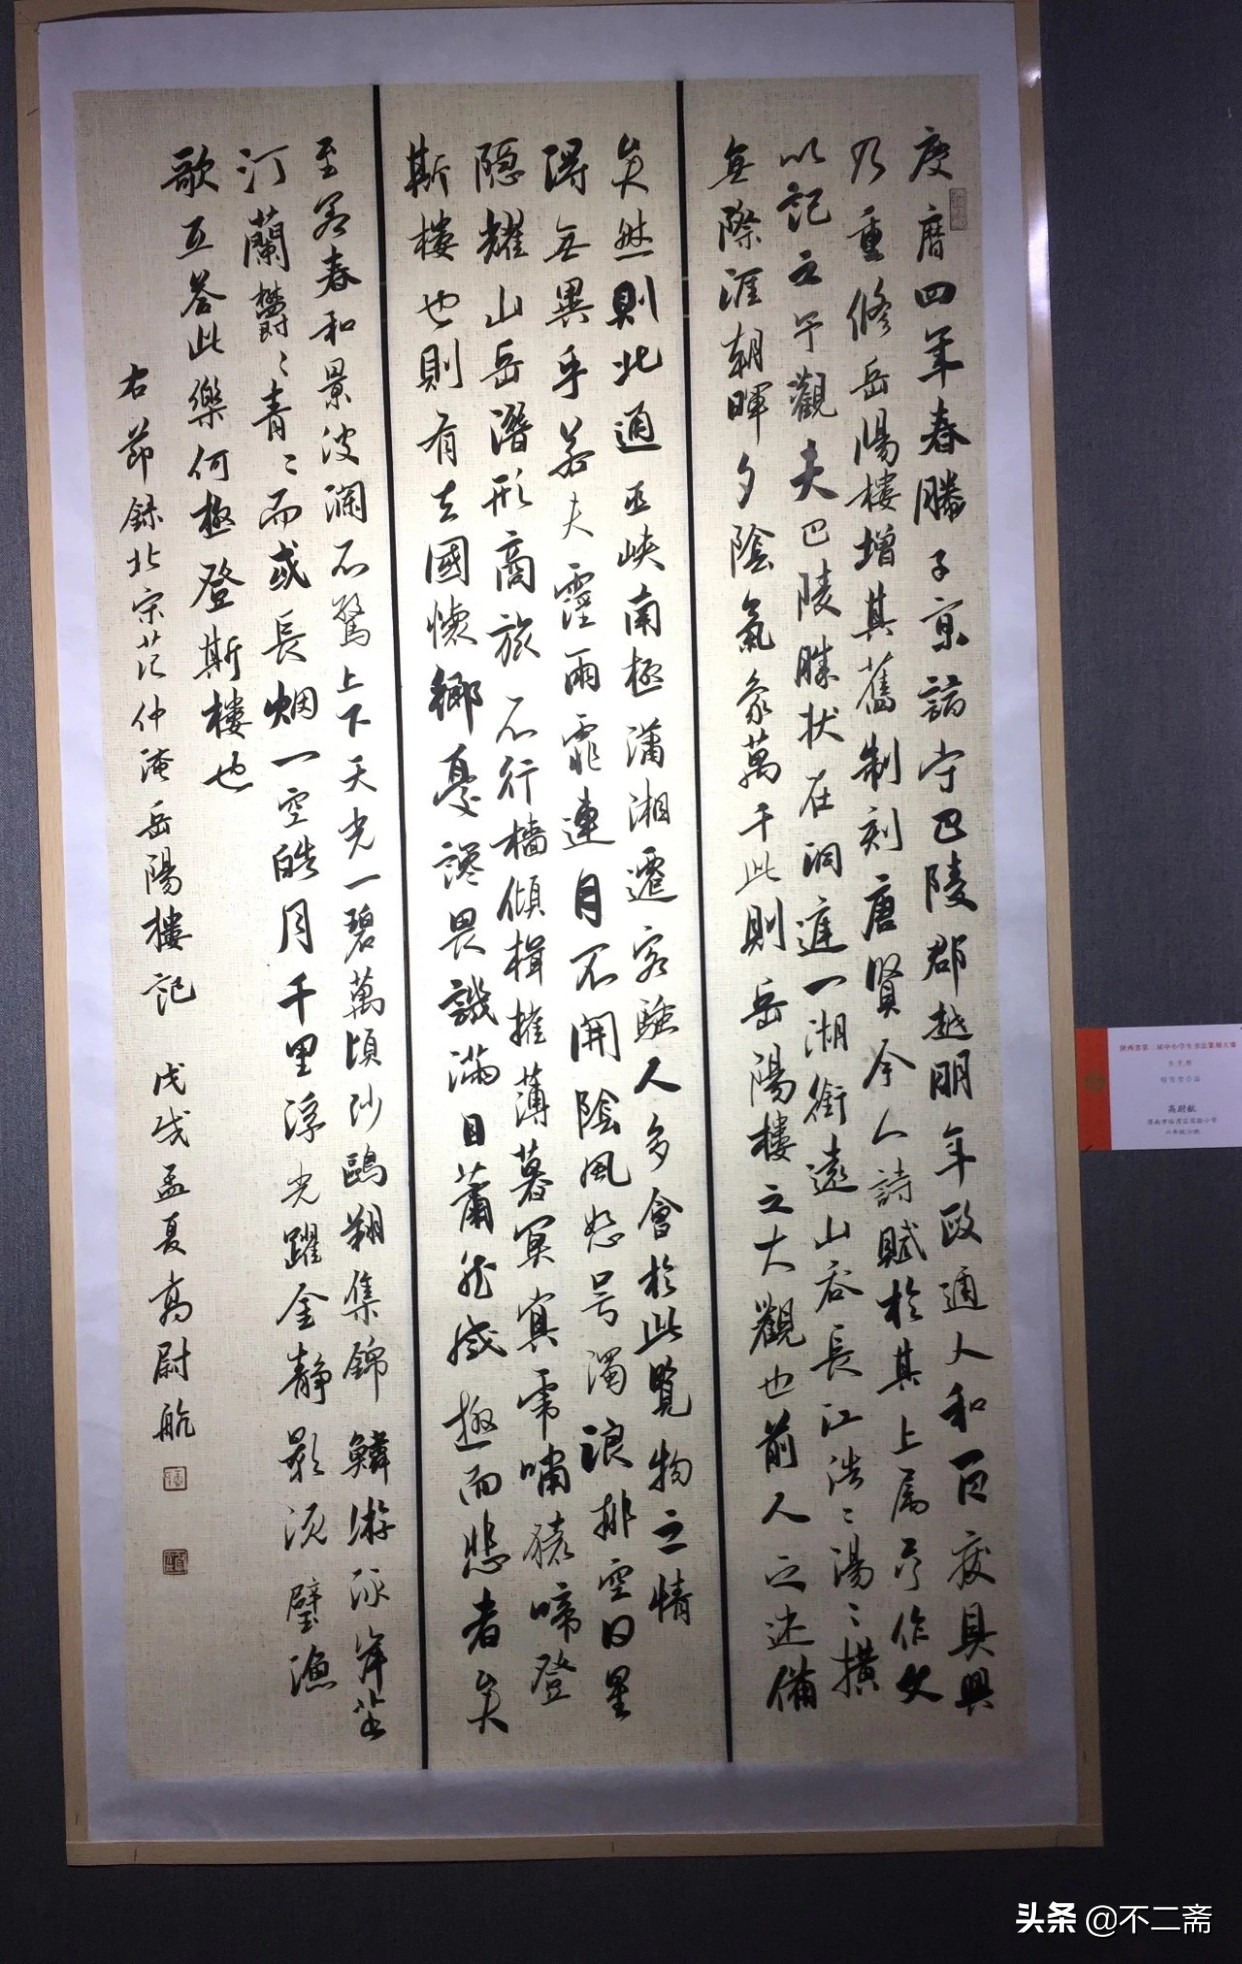 慶曆四年春滕子京謫守巴陵郡越明年政通人和百廢具興
乃重修岳陽樓增其舊制刻唐賢今人詩賦於其上属予作文
以記之予觀夫巴陵勝狀在洞庭一湖銜遠山吞長江浩〻湯〻橫
無際涯朝暉夕陰氣象萬千此則岳陽樓之大觀也前人之述備
矣然則北通巫峽南極瀟湘遷客騷人多會於此覽物之情
得無異乎若夫霪雨霏連月不開陰風怒号濁浪排空日星
隱耀山岳潛形商旅不行檣傾楫摧薄暮冥冥虎嘯猿啼登
斯樓也則有去國懷鄉憂讒畏譏滿目蕭然感極而悲者矣
至若春和景波瀾不驚上下天光一碧萬頃沙鷗翔集錦鱗游泳岸芷
汀蘭鬱〻青〻而或長烟一空皓月千里浮光躍金靜影沉璧漁
歌互答此樂何極登斯樓也
右節錄北宋范仲淹岳陽樓記 戊戌孟夏高尉航
陕西省第三届中小学生书法篆刻大赛
高尉航
渭南市临渭区实验小学
头条 @不二斋